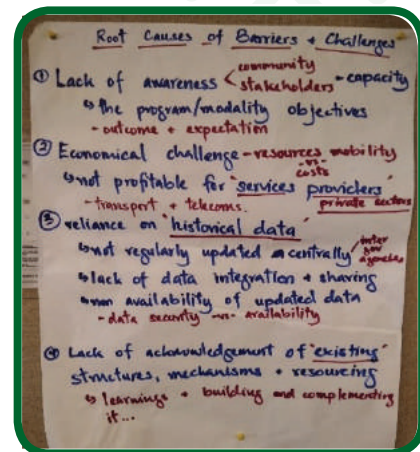 Root Causes of Barriers + Challenges
① Lack of awareness < community stakeholders - capacity
↳ the program/modality objectives
- outcome + expectation
② Economical challenge - resources mobility
-vs- costs
↳ not profitable for "services providers"
- transport + telecoms. private sectors
③ reliance on "historical data"
↳ not regularly updated centrally / inter gov agencies
↳ lack of data integration + sharing
↳ non availability of updated data
- data security -vs- availability
④ Lack of acknowledgement of "existing"
structures, mechanisms + resourcing
↳ learnings + building and complementing
it...